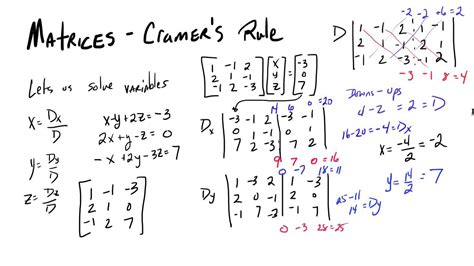 MATRICES - CRAMER'S RULE
Lets us solve variables
x = Dx/D
y = Dy/D
z = Dz/D
x-y+2z=-3
2x+y-z=0
-x+2y-3z=7
[1 -1 -3]
[2 1 0]
[-1 2 7]
[1 -1 2] [x] [-3]
[2 1 -1] [y] = [0]
[-1 2 -3] [z] [7]
14 6 0=20
Dx
-3 -1 2 -3 -1
0 1 -1 0 1
7 2 -3 7 2
9 7 0=16
0 -7 18=11
Dy
1 -3 2 1 -3
2 0 -1 2 0
-1 7 -3 -1 7
0 -3 28=25
25-11
14=Dy
-2 -2 +6=2
D
1 -1 2 1 -1
2 1 -1 2 1
-1 2 -3 -1 2
-3 -1 8=4
Downs-ups
4-2=2=D
16-20=-4=Dx
x=-4/2=-2
y=14/2=7